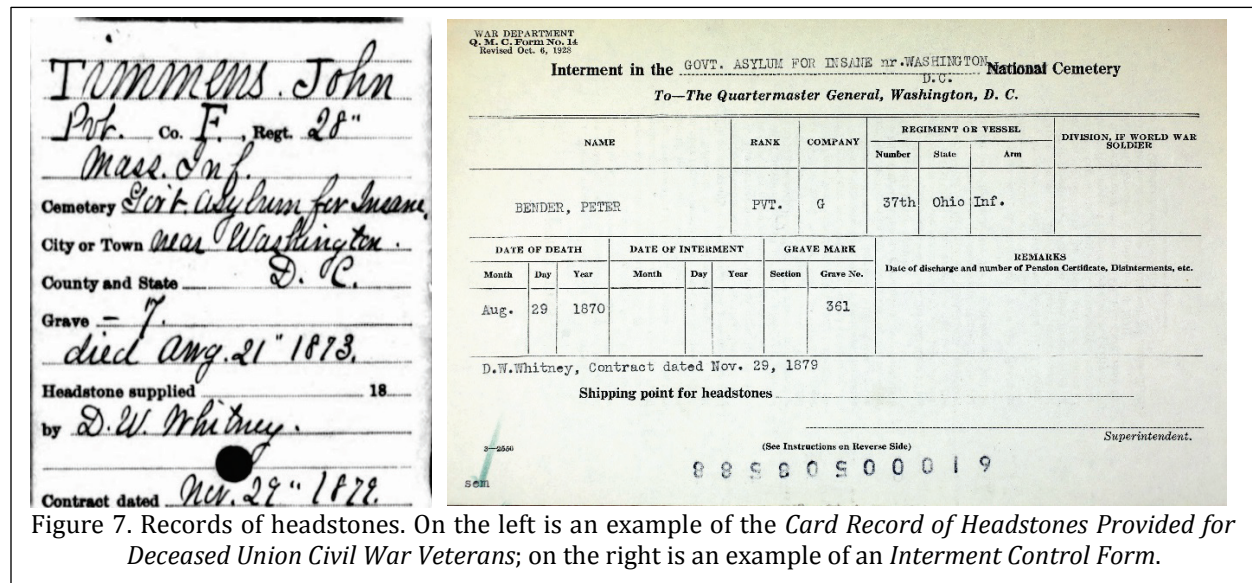 Timmens. John
Pvt. Co. F., Regt. 28"
Mass. Inf.
Cemetery Gov't. Asylum for Insane,
City or Town near Washington.
County and State D. C.
Grave – 7.
died Aug. 21" 1873.
Headstone supplied 18
by D. W. Whitney.
Contract dated Nov. 29" 1879.
WAR DEPARTMENT
Q. M. C. Form No. 14
Revised Oct. 6, 1928
Interment in the GOVT. ASYLUM FOR INSANE nr.WASHINGTON National Cemetery
D.C.
To—The Quartermaster General, Washington, D. C.
NAME RANK COMPANY REGIMENT OR VESSEL DIVISION, IF WORLD WAR SOLDIER
Number State Arm
BENDER, PETER PVT. G 37th Ohio Inf.
DATE OF DEATH DATE OF INTERMENT GRAVE MARK REMARKS
Month Day Year Month Day Year Section Grave No. Date of discharge and number of Pension Certificate, Disinterments, etc.
Aug. 29 1870 361
D.W.Whitney, Contract dated Nov. 29, 1879
Shipping point for headstones
Superintendent.
3—2550 (See Instructions on Reverse Side)
scm
Figure 7. Records of headstones. On the left is an example of the Card Record of Headstones Provided for
Deceased Union Civil War Veterans; on the right is an example of an Interment Control Form.